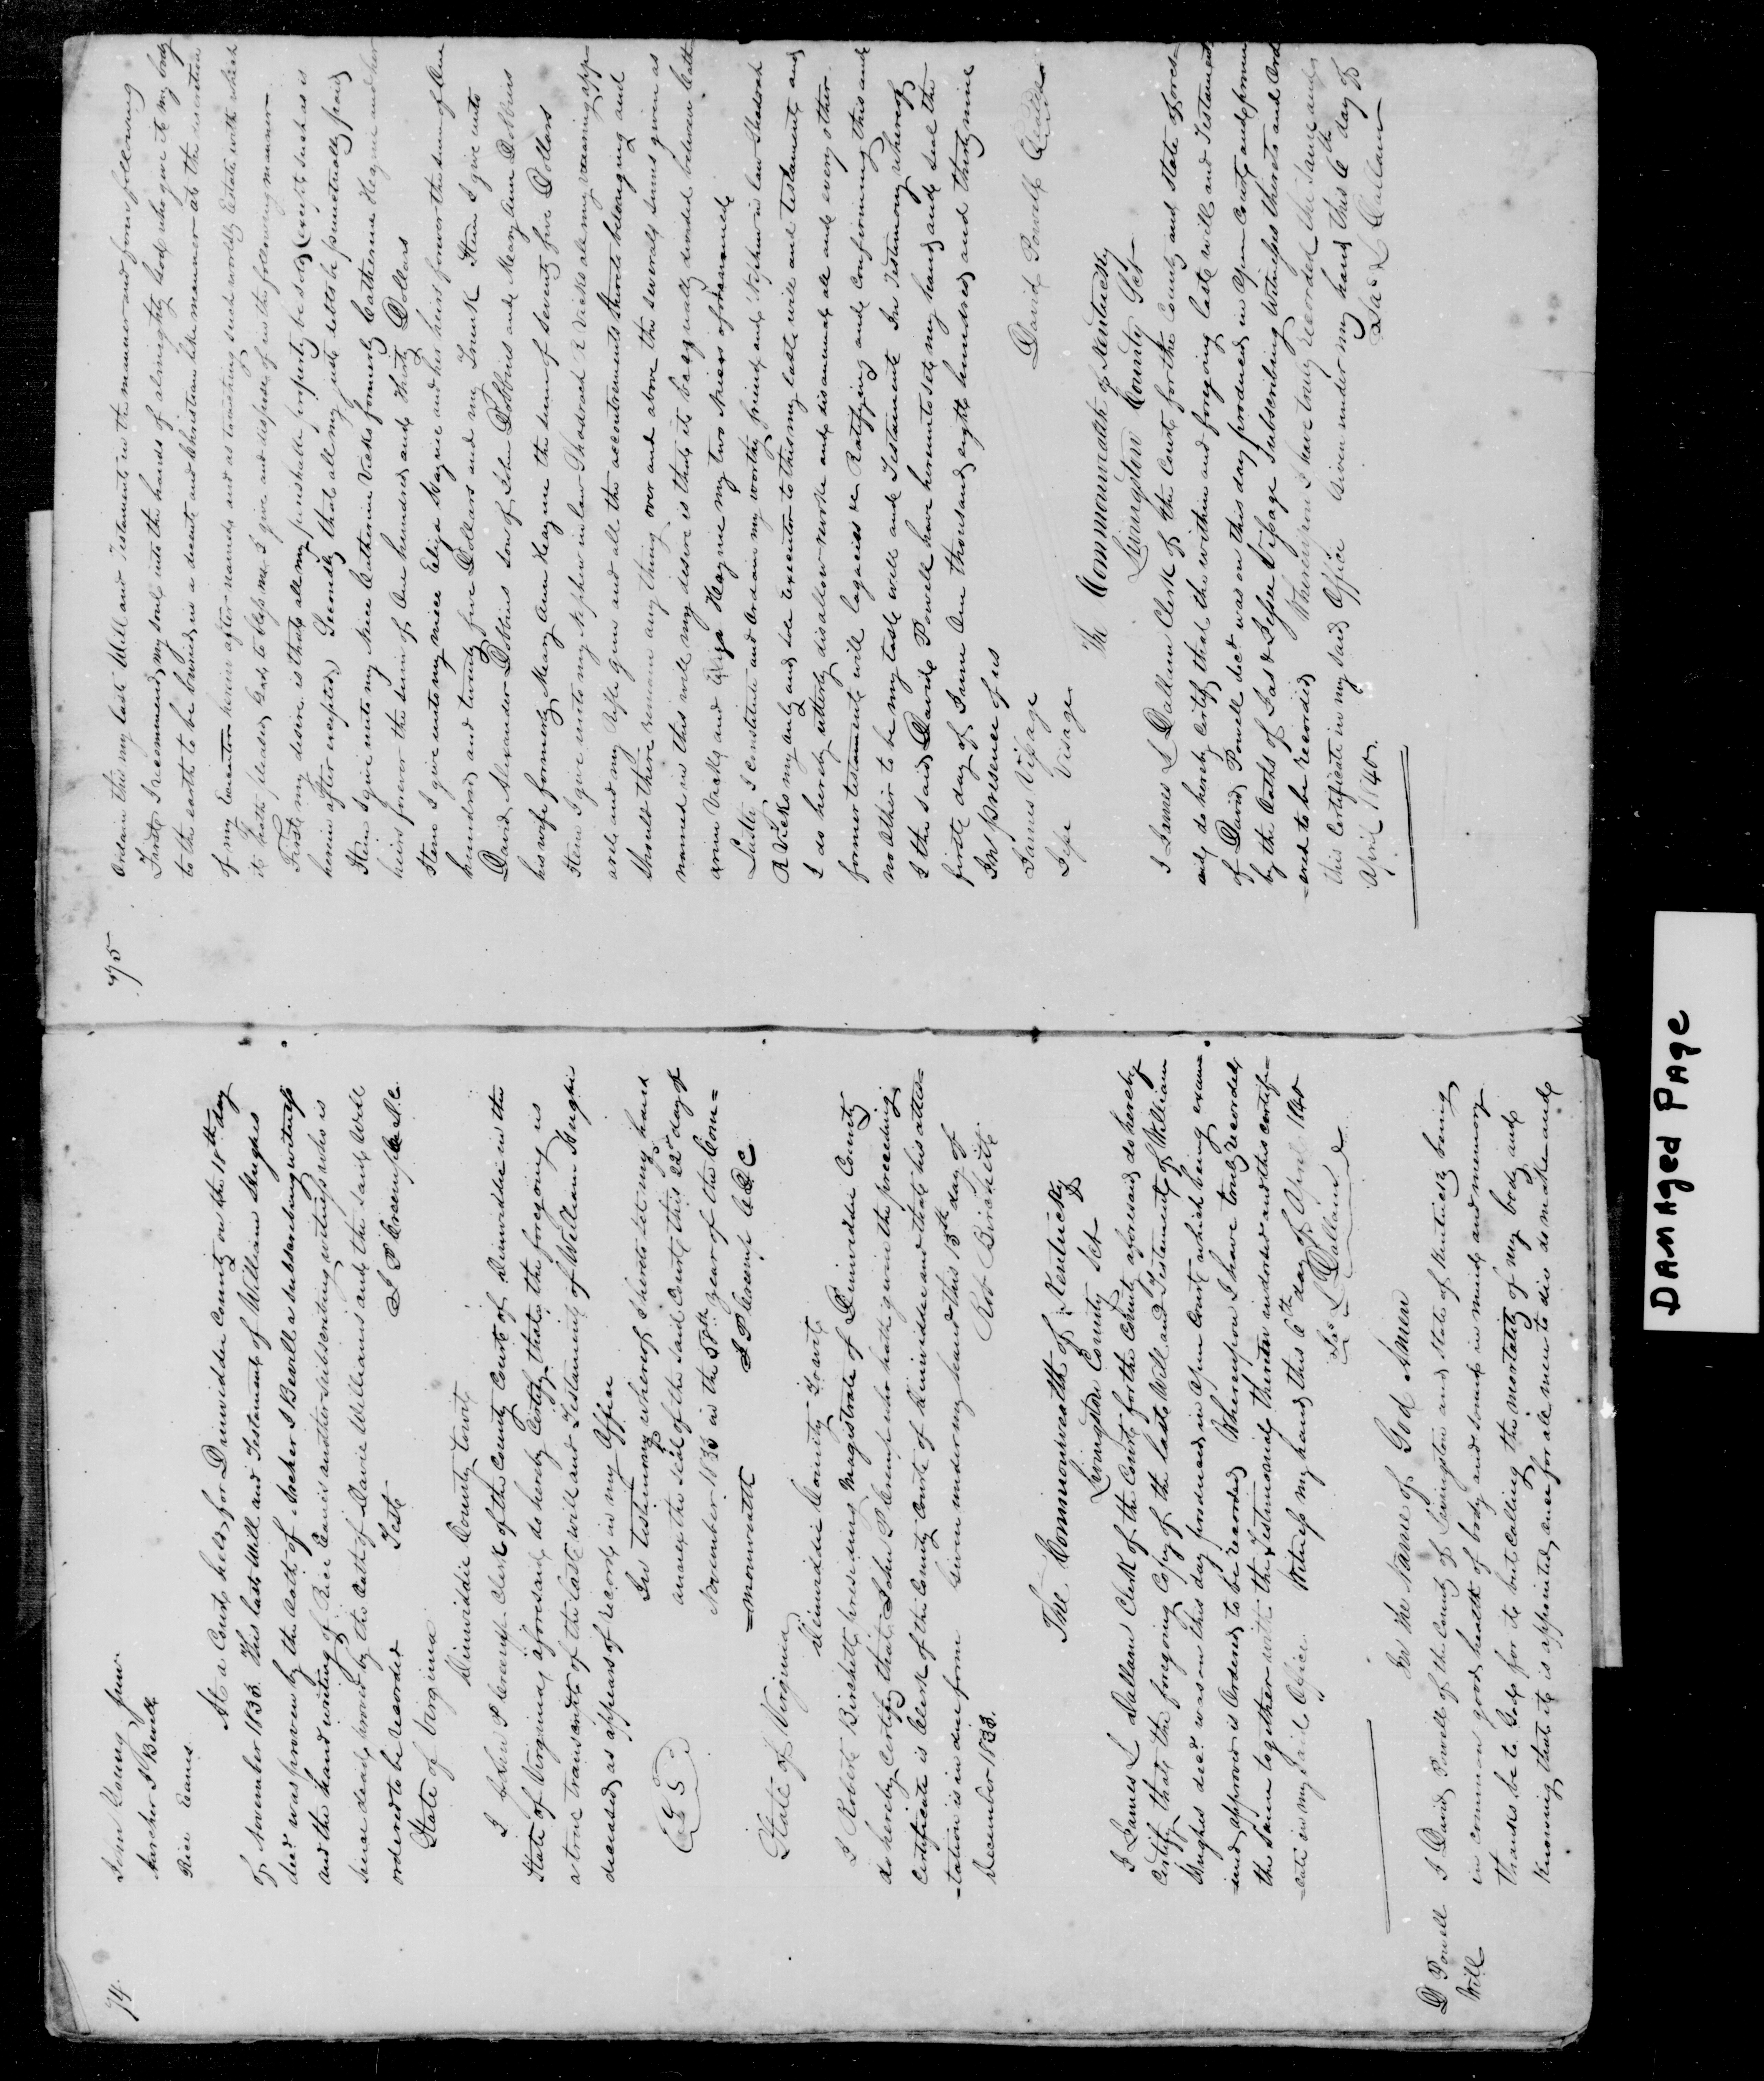 74.
John Young Junr.
Archer J Bevill
Rice Eanes
At a Court held for Dinwiddie County on the 18th day
of November 1833. This last Will and Testament of William Hughes
decd was proven by the Oath of Archer J Bevill a subscribing witness
and the hand writing of Rice Eanes another subscribing witness who is
since dead proved by the Oath of David Williams and the said Will
ordered to be recorded Teste J P Crump C D C
State of Virginia
Dinwiddie County towit
I John P Crump Clerk of the County Court of Dinwiddie in the
State of Virginia aforesaid do hereby Certify that the foregoing is
a true transcript of the last will and Testament of William Hughes
deceased as appears of record in my Office
In testimony whereof I hereto set my hand
annex the seal of the said Court this 22d day of
November 1833 in the 58th year of the Com=
=monwealth J P Crump C D C
L S
State of Virginia
Dinwiddie County Towit
I Robert Birchett presiding Magistrate of Dinwiddie County
do hereby Certify that John P Crump who hath given the preceding
Certificate is Clerk of the County Court of Dinwiddie and that his attes=
=tation is in due form Given under my hand this 15th day of
December 1833. Rob Birchett
The Commonwealth of Kentucky
Livingston County Sct
I James L Dallam Clerk of the Court for the County aforesaid do hereby
Certify that the foregoing Copy of the last Will and Testament of William
Hughes decd was on this day produced in Open Court which being exam=
=ined approved is Ordered to be recorded Whereupon I have truly recorded
the same together with the Testimonial thereon indorsed and this certifi=
=cate in my said Office Witness my hand this 6th day of April 1840
Jas L Dallam
D Powell
Will
In the Name of God Amen
I David Powell of the County of Livingston and State of Kentucky being
in common good health of body and sound in mind and memory
thanks be to God for it but Calling the mortality of my body and
Knowing that it is appointed once for all men to die do make and
75
Ordain this my last Will and Testament in the manner and form following
First I recommend my soul into the hands of almighty God who gave it my body
to the earth to be buried in a decent and Christian like manner at the discretion
of my Executor herein after named and as touching such worldly Estate with which
it hath pleased God to bless me I give and dispose of in the following manner
First my desire is that all my perishable property be sold (except such as is
herein after excepted) Secondly that all my just debts be punctually paid
Item I give unto my Niece Catherine Vicks formerly Catherine Haynie and her
heirs forever the sum of One hundred and thirty Dollars
Item I give unto my niece Eliza Haynie and her heirs forever the sum of One
hundred and twenty five Dollars and my Trunk Item I give unto
David Alexander Dobbins son of John Dobbins and Mary Ann Dobbins
his wife formerly Mary Ann Haynie the sum of seventy five Dollars
Item I give unto my Nephew in law Shadrach R Vicks all my wearing app
arel and my Rifle gun and all the accoutrements thereto belonging and
should there remain any thing over and above the several sums given as
named in this will my desire is that it be equally divided between Cath
arine Vicks and Eliza Haynie my two Nieces aforenamed
Lastly I constitute and ordain my worthy friend and Nephew in law Shadrach
R Vicks my only and sole executor to this my last will and testament and
I do hereby utterly disallow revoke and disannul all and every other
former testaments will legacies &c Ratifying and Confirming this and
no other to be my last will and Testament In Testimony whereof
I the said David Powell have hereunto set my hand and seal the
first day of June One thousand eight hundred and thirty nine
In presence of us
James Visage David Powell Seal
Jesse Visage
The Commonwealth of Kentucky
Livingston County Sct
I James L Dallam Clerk of the Court for the County and State afores
aid do hereby certify that the within and foregoing last will and Testament
of David Powell decd was on this day produced in Open Court and proven
by the Oaths of Jas & Jesse Visage subscribing Witnesses thereto and Ord
=ered to be recorded Whereupon I have truly recorded the same and
this Certificate in my said Office Given under my hand this 6th day of
April 1840. Jas L Dallam
DAMAGED PAGE